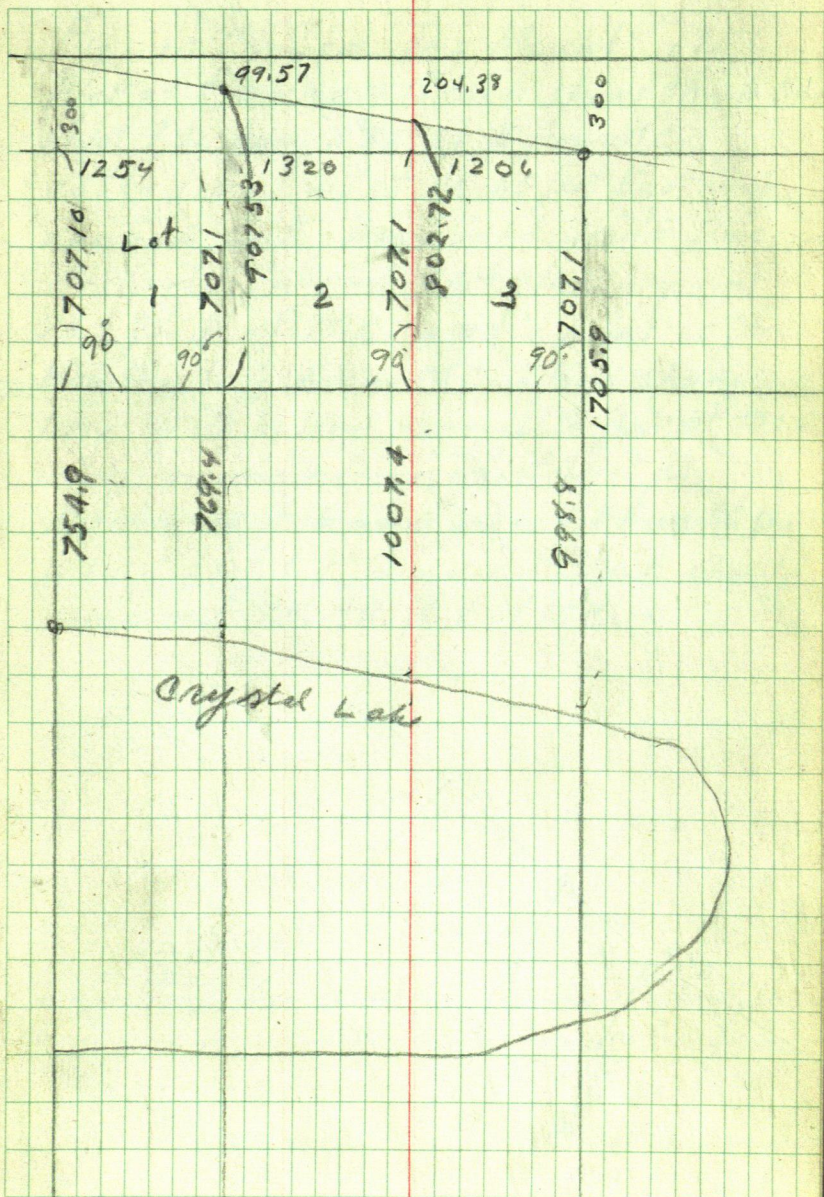 99.57
204.38
300
300
1254
1320
1206
707.10
Lot
1
707.1
907.53
2
707.1
802.72
6
707.1
90°
90°
90°
90°
1705.9
754.9
769.4
1007.4
998.8
Crystal Lake